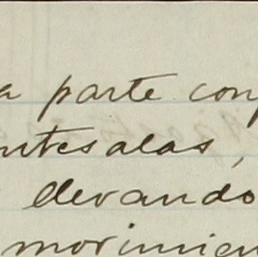 a parte con
ntesalas,
elevando
movimien